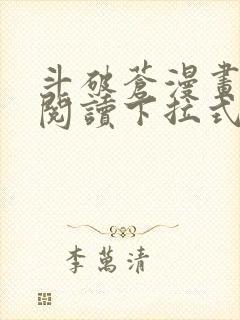 斗破蒼漫畫
閱讀下拉式
李萬清